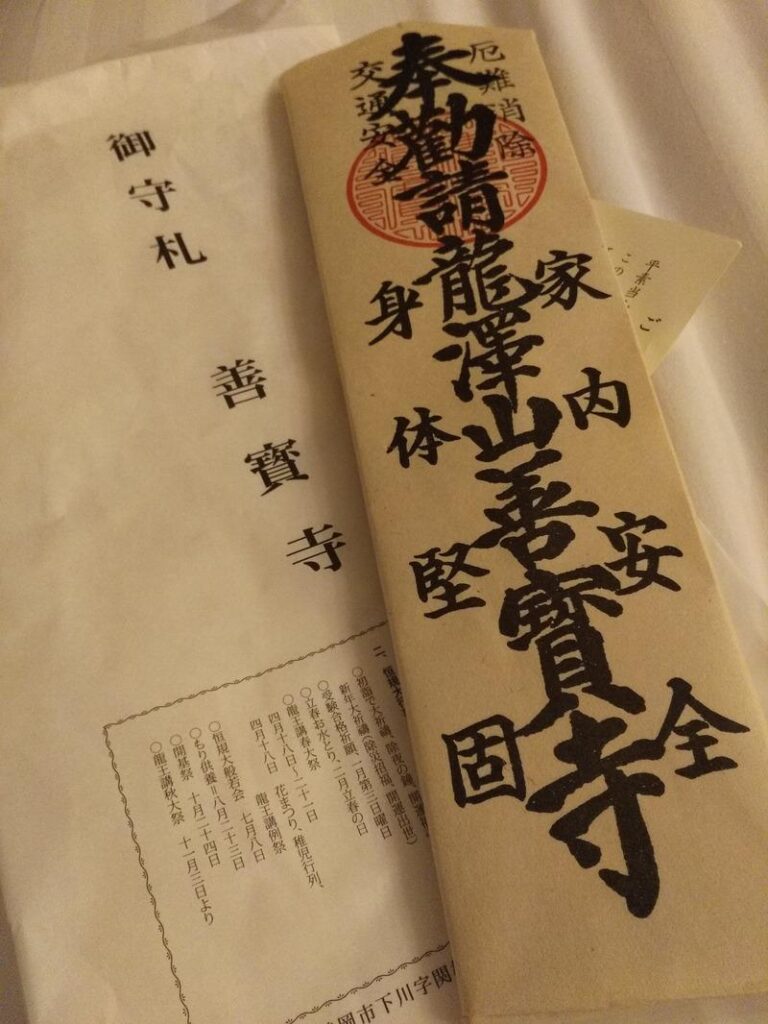 ご
平素当
この
厄難消除
家内安全
奉勧請龍澤山善寶寺
交通安全
身体堅固
御守札 善寶寺
二、恒規大
○初龍で大祈祷、除夜の鐘、
新年大祈祷(除災招福、開運出世)
○受験合格祈願、一月第三日曜日
○立春お水とり、二月立春の日
○龍王講春大祭
四月十八日～二十一日 花まつり、稚児行列、
四月十八日 龍王講例祭
○恒規大般若会 七月八日
○もり供養＝八月二十三日
○開基祭 十月二十四日
○龍王講秋大祭 十一月三日より
岡市下川字関